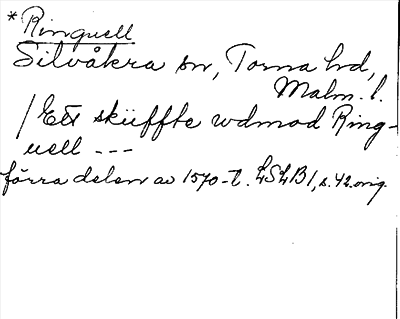 * Ringuell
Silvåkra sn, Torna hd,
Malm. l.
/ Ett skiffte wdmad Ring-
uell ---
förra delen av 1570-t. LSLB1, s. 42. orig.